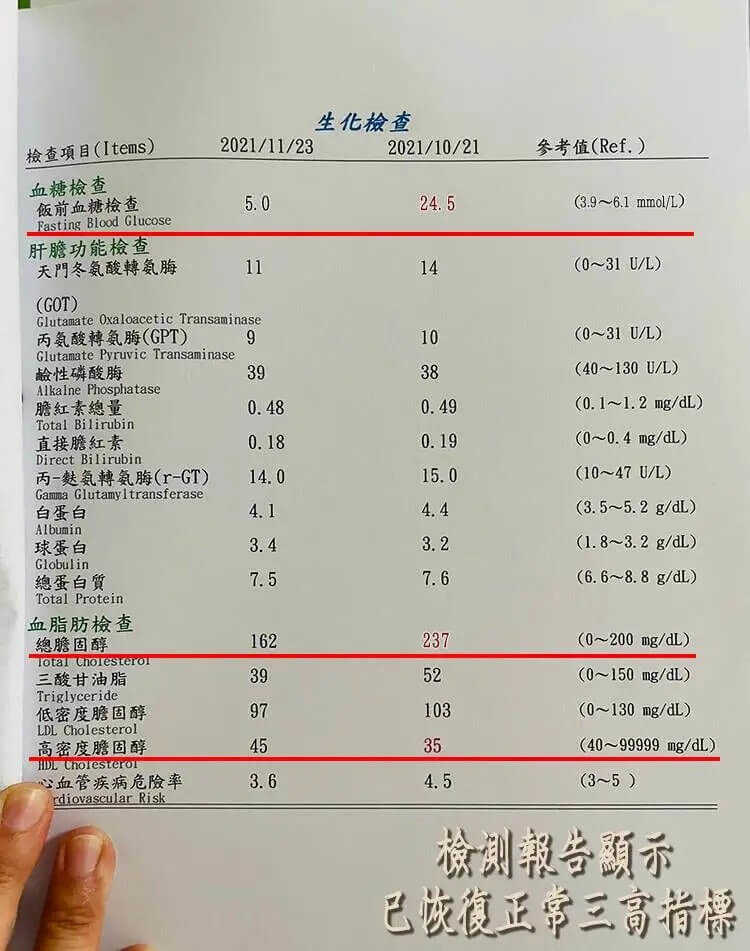 生化檢查
檢查項目(Items) 2021/11/23 2021/10/21 參考值(Ref.)
血糖檢查
飯前血糖檢查 5.0 24.5 (3.9～6.1 mmol/L)
Fasting Blood Glucose
肝膽功能檢查
天門冬氨酸轉氨脢 11 14 (0～31 U/L)
(GOT)
Glutamate Oxaloacetic Transaminase
丙氨酸轉氨脢(GPT) 9 10 (0～31 U/L)
Glutamate Pyruvic Transaminase
鹼性磷酸脢 39 38 (40～130 U/L)
Alkalne Phosphatase
膽紅素總量 0.48 0.49 (0.1～1.2 mg/dL)
Total Bilirubin
直接膽紅素 0.18 0.19 (0～0.4 mg/dL)
Direct Bilirubin
丙-麩氨轉氨脢(r-GT) 14.0 15.0 (10～47 U/L)
Gamma Glutamyltransferase
白蛋白 4.1 4.4 (3.5～5.2 g/dL)
Albumin
球蛋白 3.4 3.2 (1.8～3.2 g/dL)
Globulin
總蛋白質 7.5 7.6 (6.6～8.8 g/dL)
Total Protein
血脂肪檢查
總膽固醇 162 237 (0～200 mg/dL)
Total Cholesterol
三酸甘油脂 39 52 (0～150 mg/dL)
Triglyceride
低密度膽固醇 97 103 (0～130 mg/dL)
LDL Cholesterol
高密度膽固醇 45 35 (40～99999 mg/dL)
HDL Cholesterol
心血管疾病危險率 3.6 4.5 (3～5 )
rdiovascular Risk
檢測報告顯示
已恢復正常三高指標